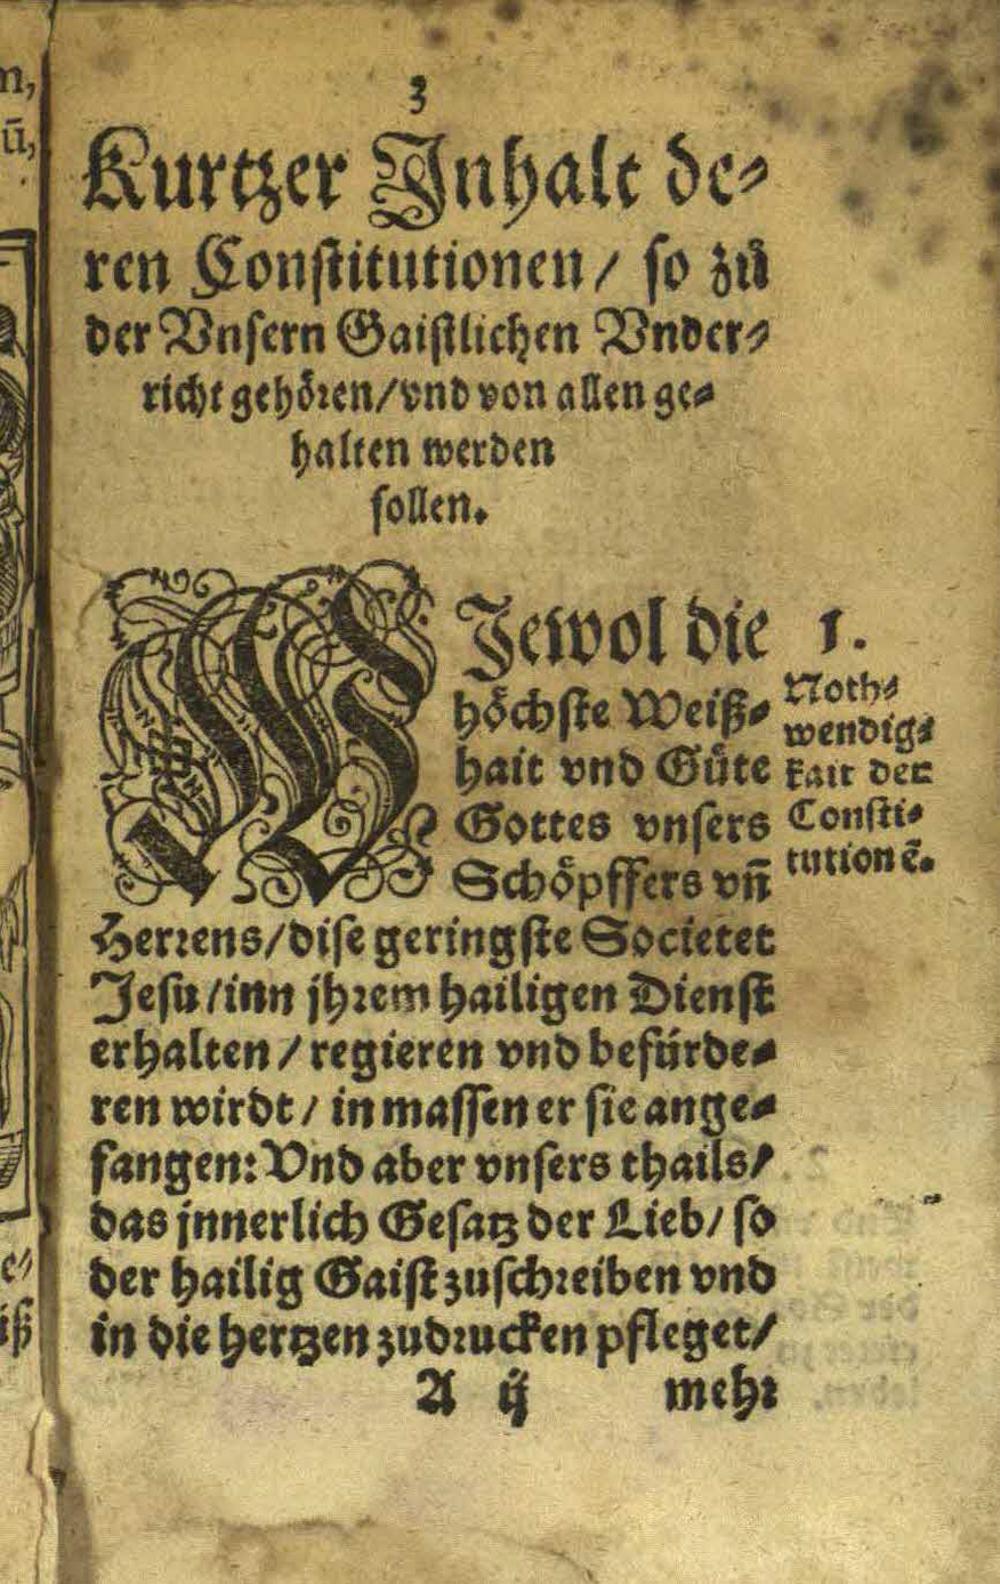 3
Kurtzer Inhalt de-
ren Constitutionen / so zů
der Vnsern Gaistlichen Vnder-
richt gehören / vnd von allen ge-
halten werden
sollen.
WJewol die
höchste Weiß-
hait vnd Güte
Gottes vnsers
Schöpffers vn̄
Herrens / dise geringste Societet
Jesu / inn jhrem hailigen Dienst
erhalten / regieren vnd befürde-
ren wirdt / in massen er sie ange-
fangen: Vnd aber vnsers thails /
das jnnerlich Gesatz der Lieb / so
der hailig Gaist zuschreiben vnd
in die hertzen zudrucken pfleget /
A ij mehr
1.
Noth-
wendig-
kait der
Consti-
tutionē.